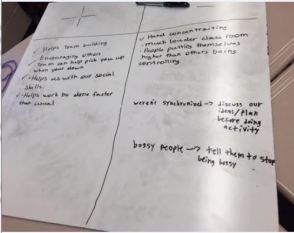 Helps Team building
Encouraging others
Team can help pick you up
when your down
Helps us with our social
skills.
Helps work be done faster
than usual
Hard concentrating
much louder class room
People putting themselves
higher than others being
controlling.
weren't synchronized → discuss our
ideas/plan
before doing
activity
bossy people → tell them to stop
being bossy